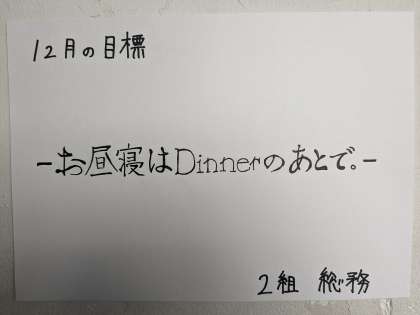 12月の目標
-お昼寝はDinnerのあとで。-
2組 総務